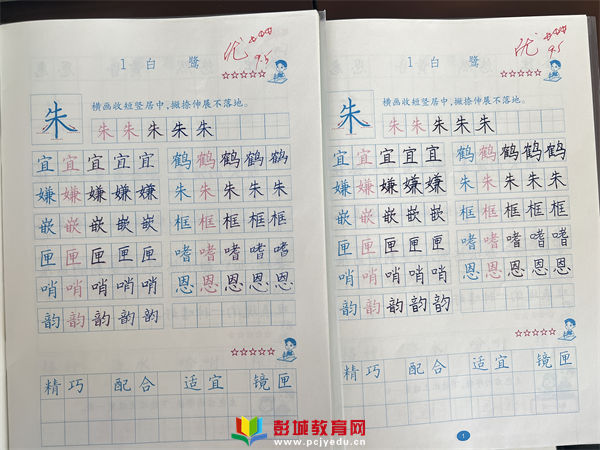 优
9.5
1 白 鹭
朱
横画收短竖居中，撇捺伸展不落地。
朱 朱 朱 朱 朱
宜 宜 宜 宜 宜 鹤 鹤 鹤 鹤 鹤
嫌 嫌 嫌 嫌 嫌 朱 朱 朱 朱 朱
嵌 嵌 嵌 嵌 嵌 框 框 框 框 框
匣 匣 匣 匣 匣 嗜 嗜 嗜 嗜 嗜
哨 哨 哨 哨 哨 恩 恩 恩 恩 恩
韵 韵 韵 韵 韵
精巧 配合 适宜 镜匣
优
9.5
1 白 鹭
朱
横画收短竖居中，撇捺伸展不落地。
朱 朱 朱 朱 朱
宜 宜 宜 宜 宜 鹤 鹤 鹤 鹤 鹤
嫌 嫌 嫌 嫌 嫌 朱 朱 朱 朱 朱
嵌 嵌 嵌 嵌 嵌 框 框 框 框 框
匣 匣 匣 匣 匣 嗜 嗜 嗜 嗜 嗜
哨 哨 哨 哨 哨 恩 恩 恩 恩 恩
韵 韵 韵 韵 韵
精巧 配合 适宜 镜匣
1
彭城教育网
www.pcjyedu.cn